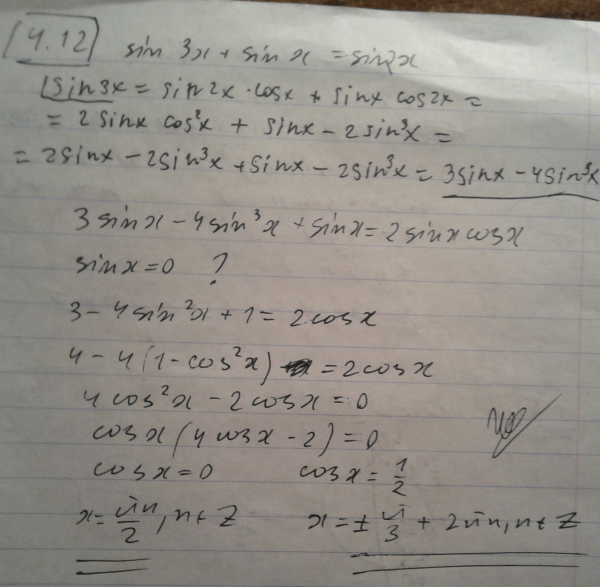 4.12 sin 3x + sin x = sin2x
sin3x = sin2x · cosx + sinx cos2x =
= 2 sinx cos²x + sinx - 2 sin³x =
= 2sinx - 2sin³x + sinx - 2sin³x = 3sinx - 4sin³x
3 sinx - 4 sin³x + sinx = 2 sinx cosx
sinx = 0 ?
3 - 4 sin²x + 1 = 2 cosx
4 - 4(1 - cos²x) = 2cosx
4 cos²x - 2 cosx = 0
cosx (4 cosx - 2) = 0
cosx = 0 cosx = 1/2
x = πn/2, n ∈ Z x = ± π/3 + 2πn, n ∈ Z